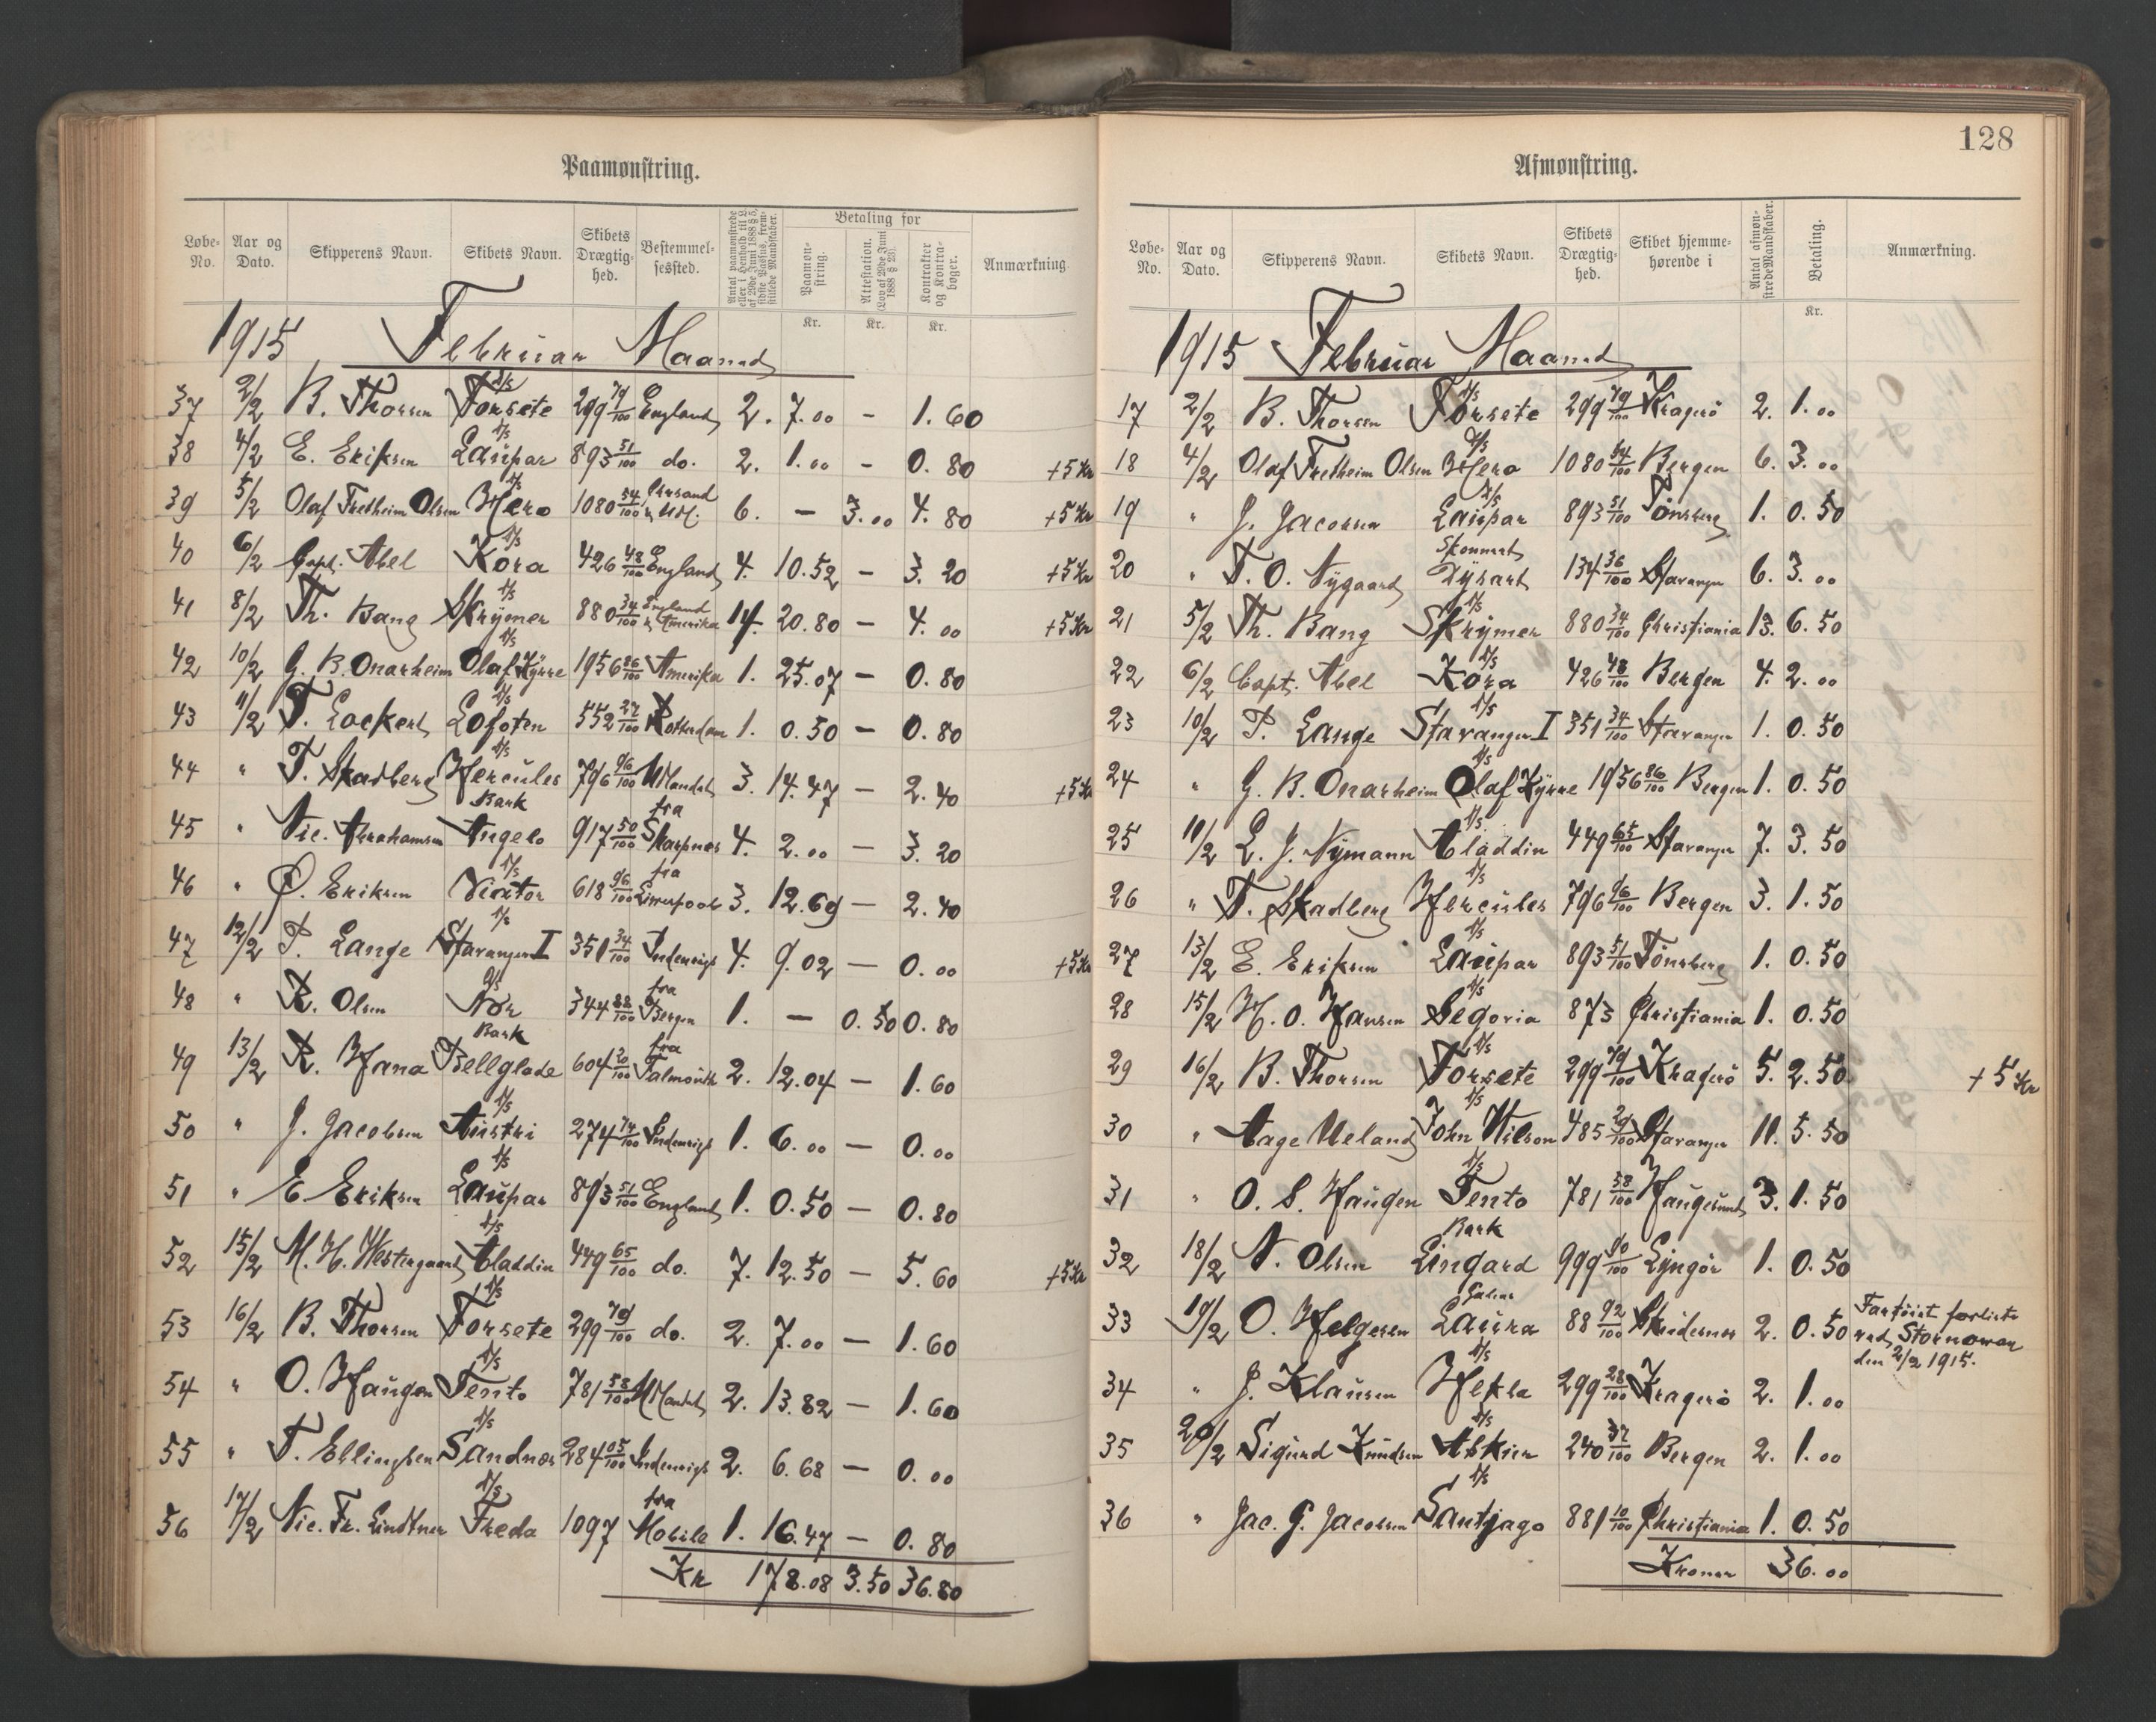 128
Paamønstring.
Løbe-No. Aar og Dato. Skipperens Navn. Skibets Navn. Skibets Drægtig-hed. Bestemmel-sessted. Antal paamønstrede eller i Henhold til L. af 29de Juni 1888 § 5, sidste Passus, frem-stillede Mandskaber. Betaling for Paamøn-string. Attestation. (Lov af 29de Juni 1888 § 26). Kontrakter og Kontra-bøger. Anmærkning
Kr. Kr. Kr.
1915 Februar Maaned
37 2/2 B. Thorsen D/S Forsete 299 79/100 England 2. 7.00 — 1.60
38 4/2 E. Eriksen D/S Laupar 893 51/100 do. 2. 1.00 — 0.80 +5 Kr
39 5/2 Olaf Fretheim Olsen D/S Hero 1080 54/100 Chrsand 6. — 3.00 4.80 +5 Kr
40 6/2 Capt. Abel D/S Kora 426 48/100 England 4. 10.52 — 3.20 +5 Kr
41 8/2 Th. Bang D/S Skrymer 880 34/100 England & Amerika 14. 20.80 — 4.00 +5 Kr
42 10/2 G. B. Onarheim D/S Olaf Kyrre 1956 86/100 Amerika 1. 25.07 — 0.80
43 11/2 T. Lockert D/S Lofoten 552 27/100 Rotterdam 1. 0.50 — 0.80
44 " T. Skadberg D/S Hercules 796 96/100 Udlandet 3. 14.47 — 2.40 +5 Kr
45 " Nic. Abrahamsen Bark Angelo 917 50/100 fra Skarpnes 4. 2.00 — 3.20
46 " O. Eriksen D/S Viator 618 96/100 fra Liverpool 3. 12.69 — 2.40
47 12/2 P. Lange D/S Stavanger I 351 34/100 Indenrigs 4. 9.02 — 0.00 +5 Kr
48 " R. Olsen D/S Nor 344 88/100 fra Bergen 1. — 0.50 0.80
49 13/2 R. Hana Bark Bellglade 604 20/100 fra Falmouth 2. 12.04 — 1.60
50 " J. Jacobsen D/S Austri 274 74/100 Indenrigs 1. 6.00 — 0.00
51 " E. Eriksen D/S Laupar 893 51/100 England 1. 0.50 — 0.80
52 15/2 M. H. Westergaard D/S Aladdin 449 65/100 do. 7. 12.50 — 5.60 +5 Kr
53 16/2 B. Thorsen D/S Forsete 299 79/100 do. 2. 7.00 — 1.60
54 " O. Haugen D/S Tento 781 58/100 Udlandet 2. 13.82 — 1.60
55 " T. Ellingsen D/S Sandnes 284 05/100 Indenrigs 2. 6.68 — 0.00
56 17/2 Nic. Fr. Lindtner D/S Freda 1097 fra Mobile 1. 16.47 — 0.80
Kr 178.08 3.50 36.80
Afmønstring.
Løbe-No. Aar og Dato. Skipperens Navn. Skibets Navn. Skibets Drægtig-hed. Skibet hjemme-hørende i Antal afmøn-strede Mandskaber. Betaling. Anmærkning.
Kr.
1915 Februar Maaned
17 2/2 B. Thorsen D/S Forsete 299 79/100 Kragerö 2. 1.00
18 4/2 Olaf Fretheim Olsen D/S Hero 1080 54/100 Bergen 6. 3.00
19 " J. Jacobsen D/S Laupar 893 51/100 Tönsberg 1. 0.50
20 " T. O. Nygaard Skonnert Dysart 134 36/100 Stavanger 6. 3.00
21 5/2 Th. Bang D/S Skrymer 880 34/100 Christiania 13. 6.50
22 6/2 Capt. Abel D/S Kora 426 48/100 Bergen 4. 2.00
23 10/2 P. Lange D/S Stavanger I 351 34/100 Stavanger 1. 0.50
24 " G. B. Onarheim D/S Olaf Kyrre 1956 86/100 Bergen 1. 0.50
25 11/2 L. J. Nymann D/S Aladdin 449 65/100 Stavanger 7. 3.50
26 " T. Skadberg D/S Hercules 796 96/100 Bergen 3. 1.50
27 13/2 E. Eriksen D/S Laupar 893 51/100 Tönsberg 1. 0.50
28 15/2 H. O. Hansen D/S Segovia 873 Christiania 1. 0.50
29 16/2 B. Thorsen D/S Forsete 299 79/100 Kragerö 5. 2.50 +5 Kr
30 " Aage Ueland D/S John Wilson 485 29/100 Stavanger 11. 5.50
31 " O. S. Haugen D/S Tento 781 58/100 Haugesund 3. 1.50
32 18/2 N. Olsen Bark Lingard 999 90/100 Lyngör 1. 0.50
33 19/2 O. Helgesen Galeas Laura 88 92/100 Skudesnes 2. 0.50 Fartöiet forliste ved Stornoway den 2/2 1915.
34 " J. Klausen D/S Hekla 299 28/100 Kragerö 2. 1.00
35 20/2 Sigurd Knudsen D/S Abkien 240 37/100 Bergen 2. 1.00
36 " Jac. G. Jacobsen D/S Santjago 881 10/100 Christiania 1. 0.50
Kroner 36.00